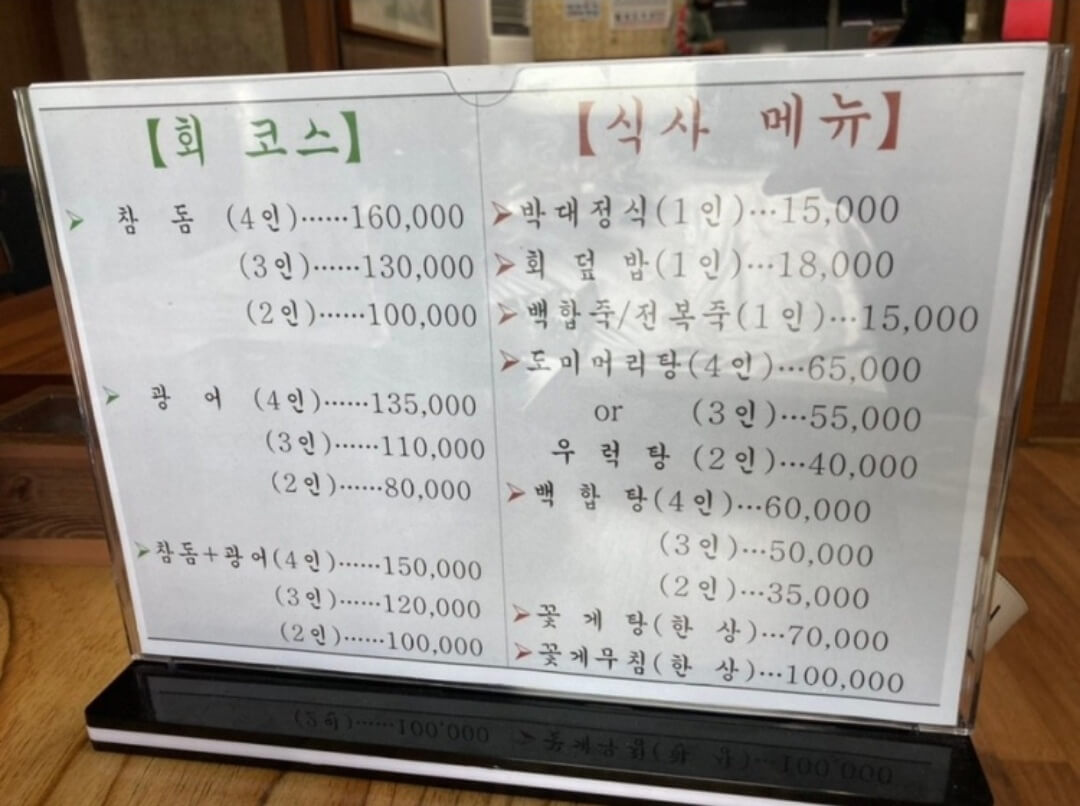 【회 코스】
➢ 참 돔 (4인)······160,000
(3인)······130,000
(2인)······100,000
➢ 광 어 (4인)······135,000
(3인)······110,000
(2인)······80,000
➢참돔+광어(4인)······150,000
(3인)······120,000
(2인)······100,000
【식사 메뉴】
➢박대정식(1인)···15,000
➢회 덮 밥(1인)···18,000
➢백합죽/전복죽(1인)···15,000
➢도미머리탕(4인)···65,000
or (3인)···55,000
우 럭 탕 (2인)···40,000
➢백 합 탕(4인)···60,000
(3인)···50,000
(2인)···35,000
➢꽃 게 탕(한 상)···70,000
➢꽃게무침(한 상)···100,000